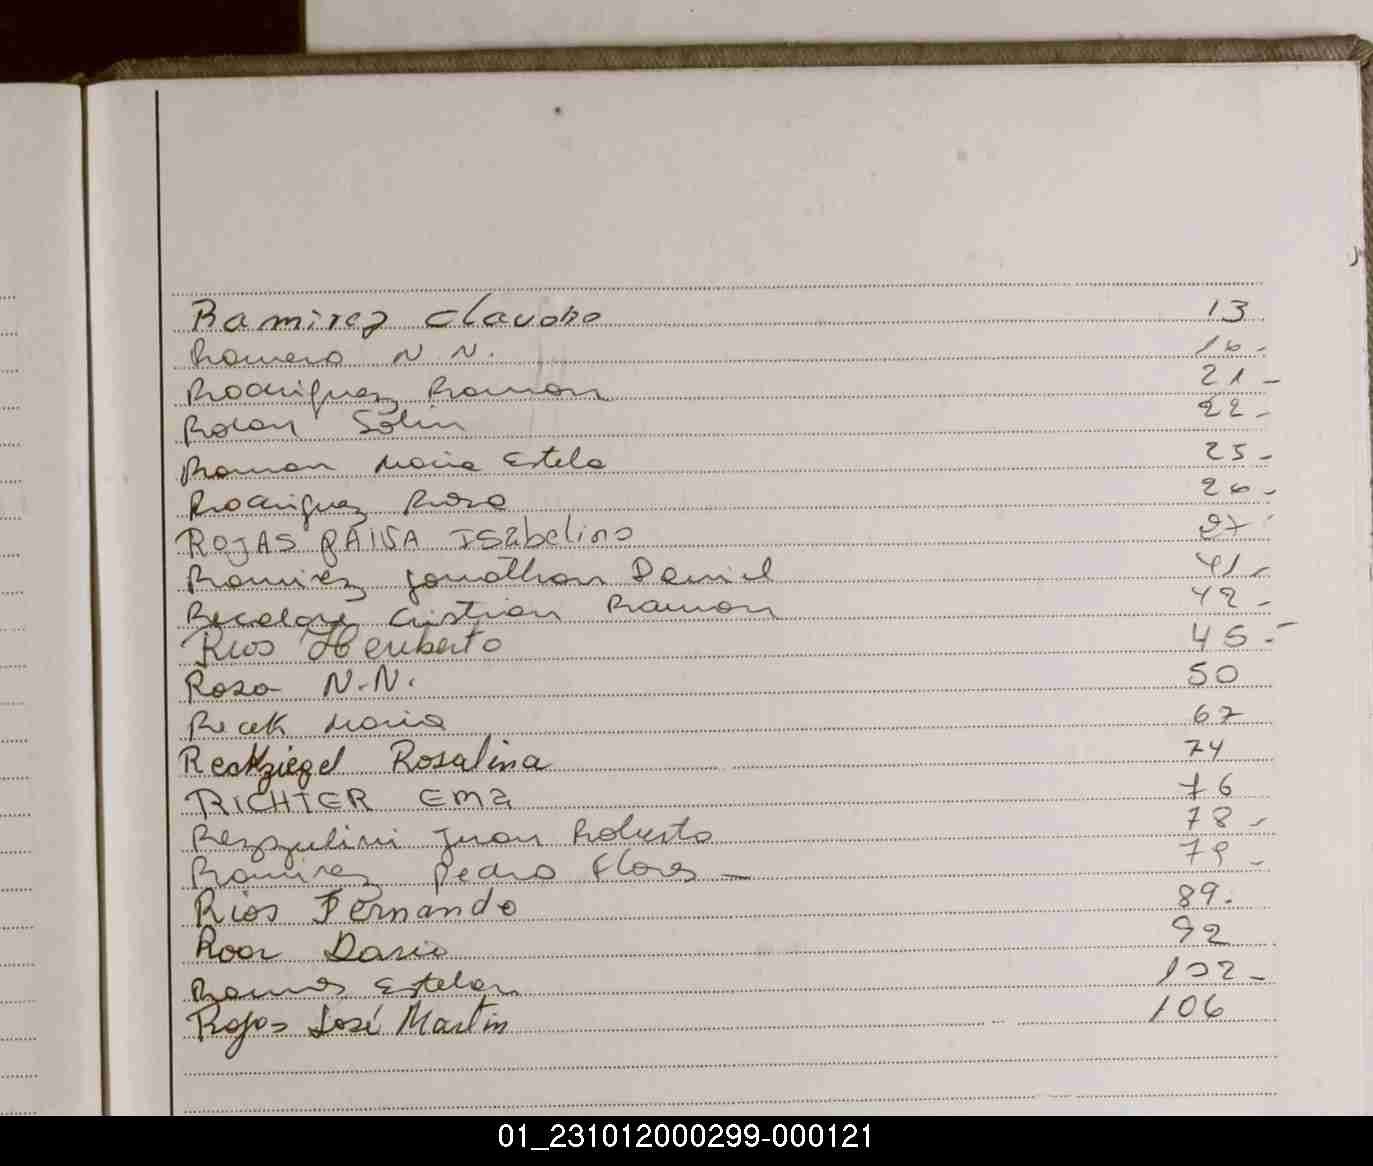 Ramirez Claudio 13
Romero N. N. 16-
Rodriguez Ramon 21-
Rolon 22-
Roman Maria Estela 25-
Rodriguez Rosa 26-
ROJAS PAIVA ISabelino 27
Ramirez Jonathan Daniel 41-
Cristian Ramon 42-
Rios Heriberto 45-
Rosa N.N. 50
Recek Maria 67
Reckziegel Rosalina 74
RICHTER Ema 76
Rezzulini Juan Roberto 78-
Ramirez Pedro Flores - 79-
Rios Fernando 89.
Roor Dario 92
Ramos 102-
Rojas José Martin 106
01_231012000299-000121